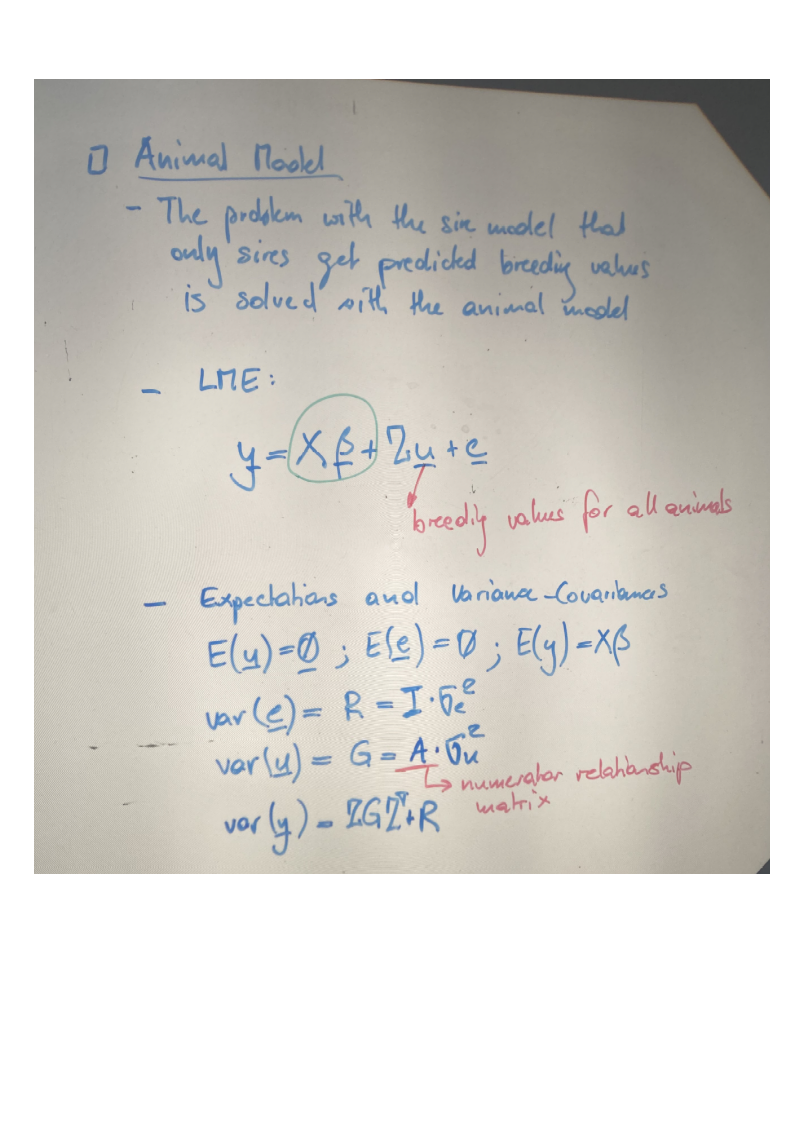 Animal Model
- The problem with the sire model that
only sires get predicted breeding values
is solved with the animal model
- LME:
y = Xβ + Zu + e
breeding values for all animals
- Expectations and Variance-Covariances
E(u) = 0 ; E(e) = 0 ; E(y) = Xβ
var(e) = R = I · σe²
var(u) = G = A · σu²
numerator relationship
matrix
var(y) = ZGZᵀ + R